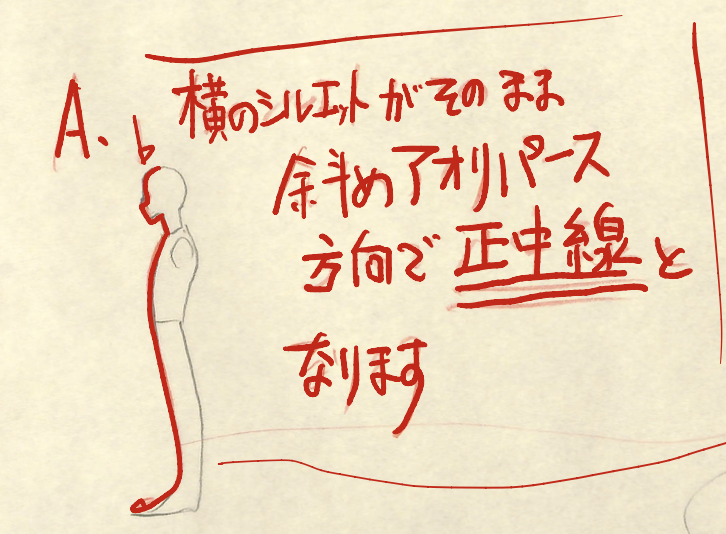 A. 横のシルエットがそのまま
斜めアオリパース
方向で正中線と
なります